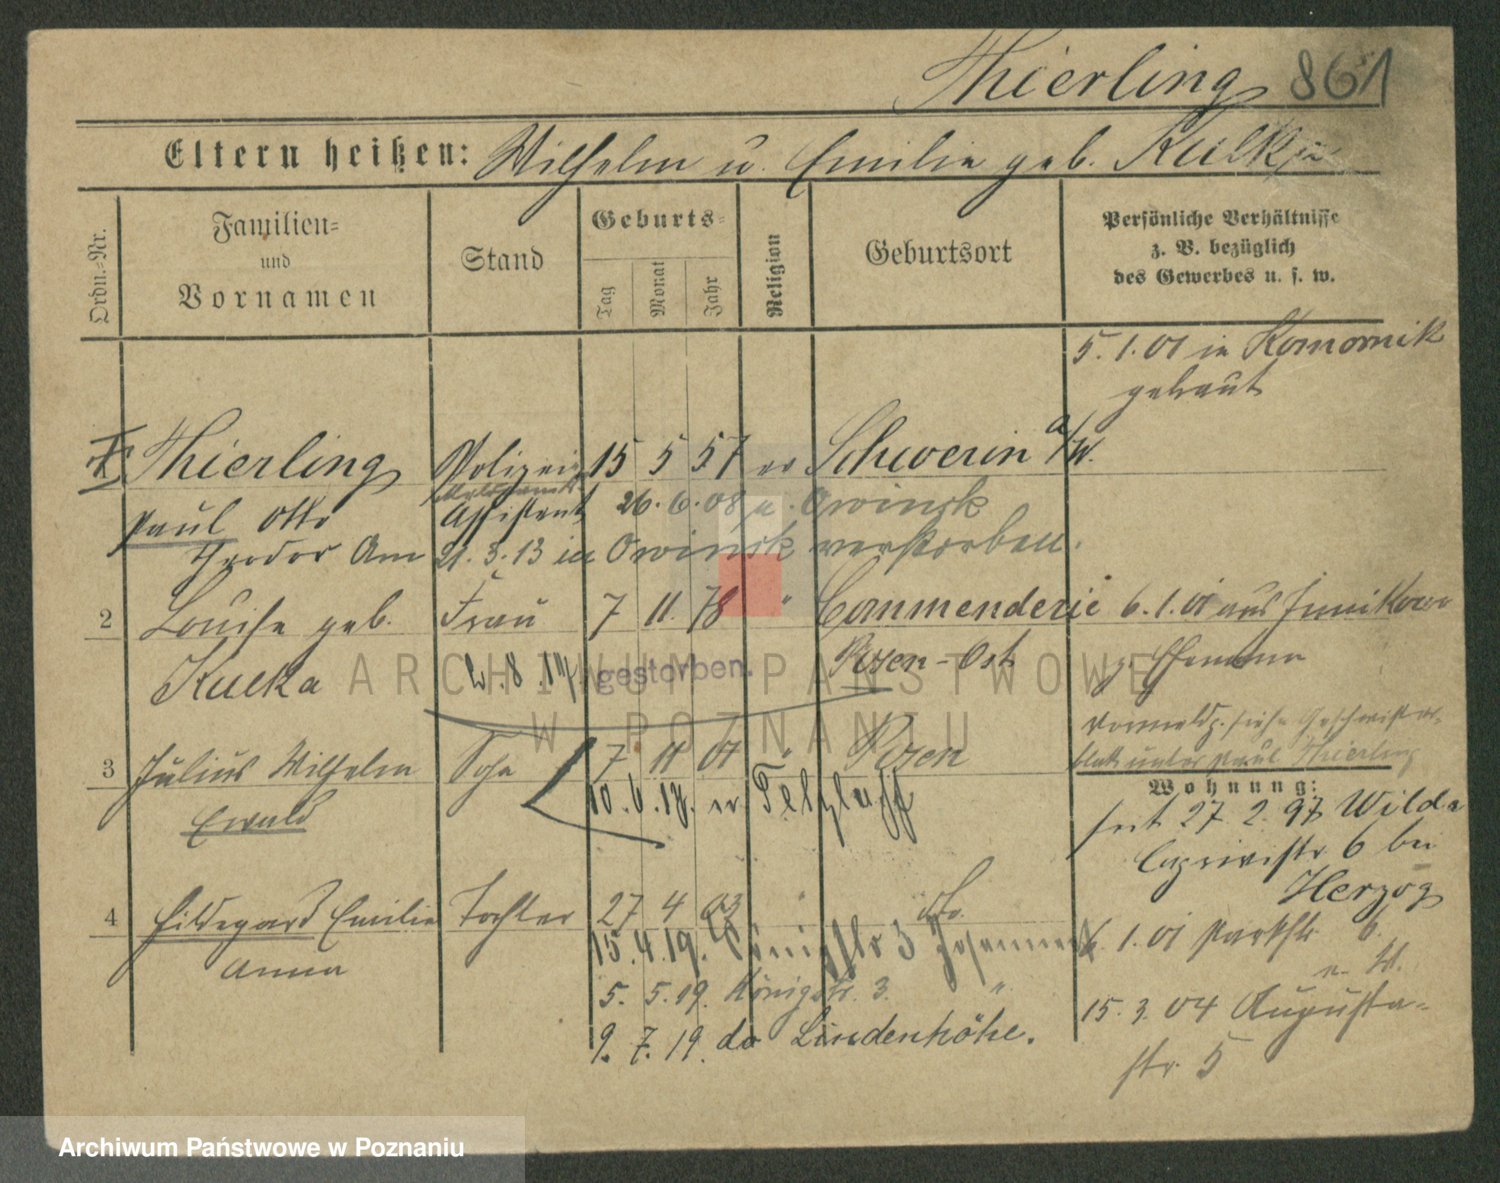 Thierling 861
Eltern heißen: Wilhelm u. Emilie geb. Kulka
Ordn.-Nr.
Familien-
und
Vornamen
Stand
Geburts-
Tag
Monat
Jahr
Religion
Geburtsort
Persönliche Verhältnisse
z. B. bezüglich
des Gewerbes u. s. w.
5. 1. 01 in Komornik
getraut
Thierling Polizei 15 5 57 ev Schwerin a/W.
Paul Otto Assistent 26. 6. 08 n. Owinsk
Theodor Am 21. 3. 13 in Owinsk verstorben.
2 Louise geb. Frau 7 11. 78 " Commenderie 6. 1. 01 aus
Kulka gestorben. Posen-Ost z. Ehemann
3 Julius Wilhelm Sohn 7 11 01 " Posen
Ewald 10. 6. 18. n.
blatt unter Paul Thierling
Wohnung:
seit 27. 2. 97 Wilda
Caprivistr 6 bei
Herzog
4 Hildegard Emilie Tochter 27 4 03 " do.
Anna 15. 4. 19. Königstr 3
6. 1. 01 Parkstr 6.
5. 5. 19. Königstr. 3. "
15. 3. 04 Augusta-
9. 7. 19. do Lindenhöhe.
str. 5
ARCHIWUM PAŃSTWOWE
W POZNANIU
Archiwum Państwowe w Poznaniu